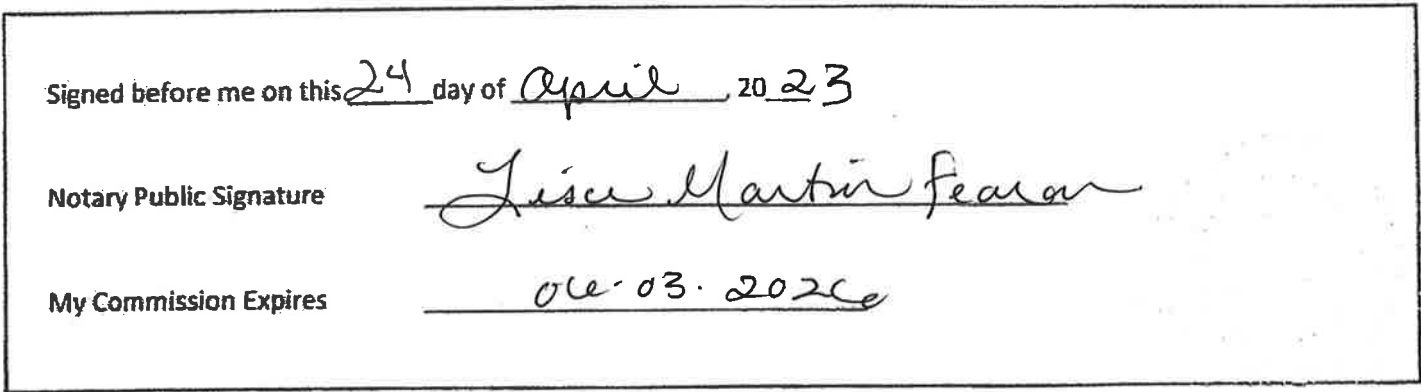 Signed before me on this 24 day of April, 2023
Notary Public Signature Lisa Martin Fearon
My Commission Expires 06.03.2026